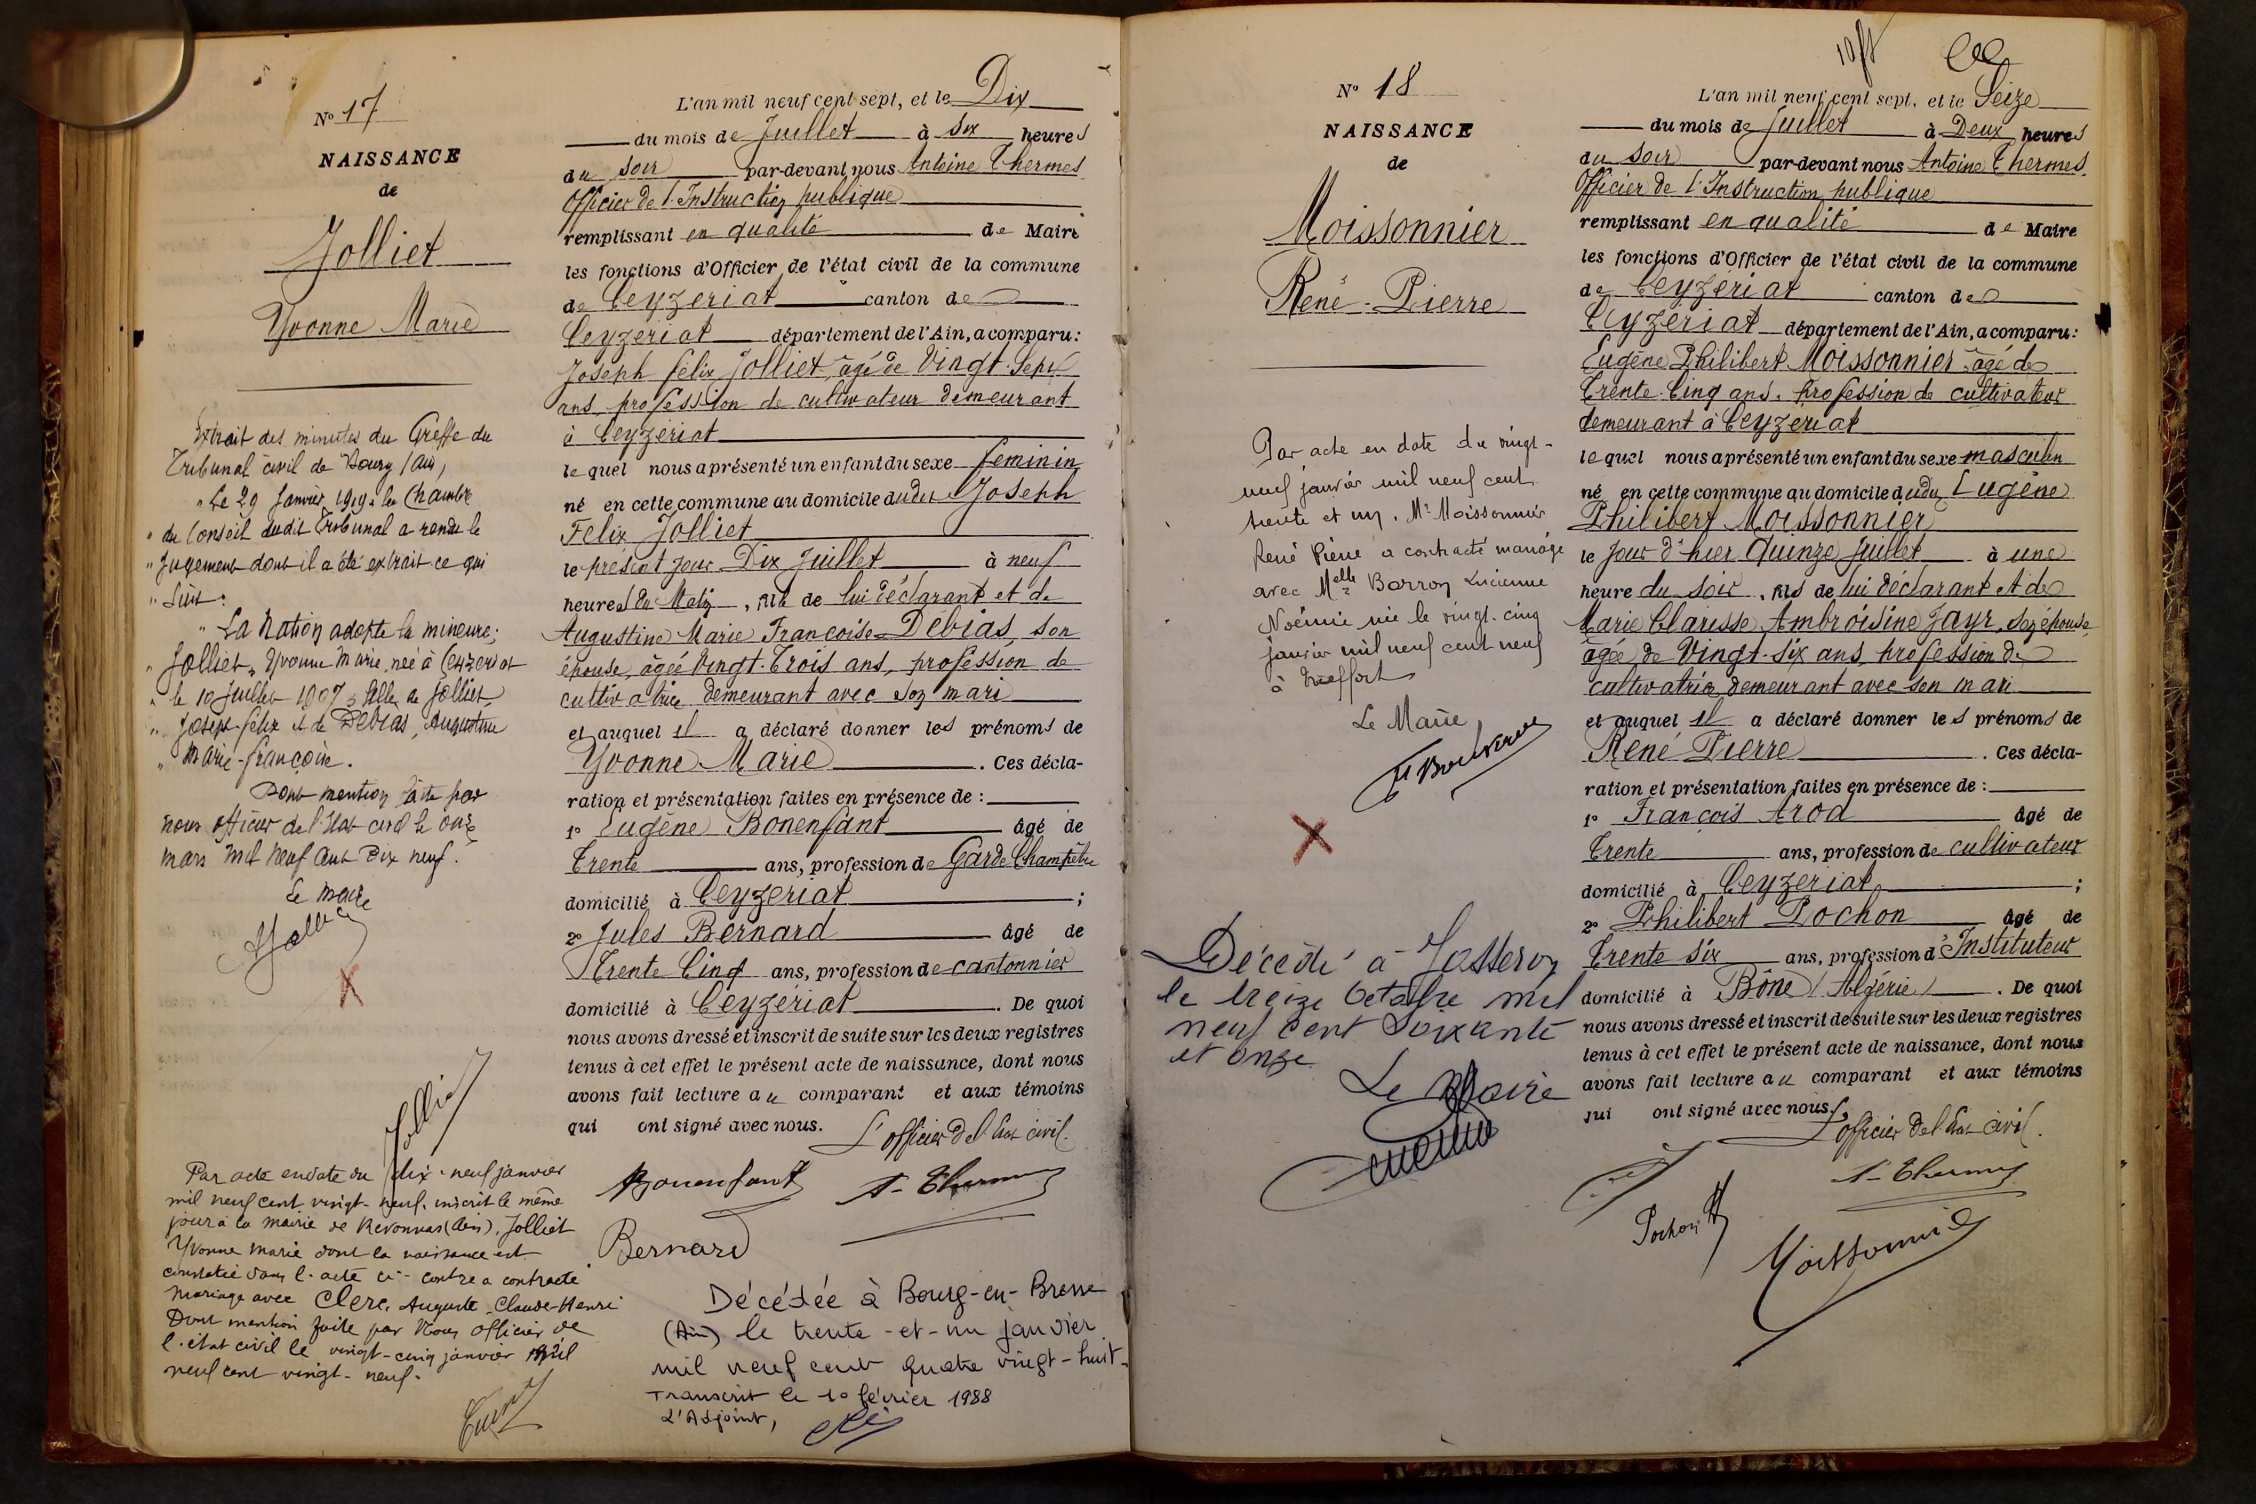 N° 17
NAISSANCE
de
Jolliet
Yvonne Marie
Extrait des minutes du Greffe du
Tribunal civil de Bourg (Ain),
"Le 29 Janvier 1919 la Chambre
" du Conseil dudit Tribunal a rendu le
" Jugement dont il a été extrait ce qui
" Suit:
" La Nation adopte la mineure;
" Jolliet, Yvonne Marie née à Ceyzeriat
" le 10 Juillet 1907, fille de Jolliet,
" Joseph-félix et de Debias, Augustine
" Marie-françoise.
Dont mention faite par
nous officier de l'Etat civil le onze
mars mil neuf cent Dix neuf.
Le maire
Jolliet
Par acte en date du dix-neuf janvier
mil neuf cent vingt-neuf, inscrit le même
jour à la mairie de Revonnas (Ain), Jolliet
Yvonne Marie dont la naissance est
constatée dans l'acte ci-contre a contracté
mariage avec Clerc, Auguste Claude-Henri
Dont mention faite par Nous officier de
l'état civil le vingt-cinq janvier mil
neuf cent vingt-neuf.
L'an mil neuf cent sept, et le Dix
du mois de Juillet à six heures
du soir par-devant nous Antoine Thermes
Officier de l'Instruction publique
remplissant en qualité de Maire
les fonctions d'Officier de l'état civil de la commune
de Ceyzériat canton de
Ceyzériat département de l'Ain, a comparu:
Joseph félix Jolliet, âgé de Vingt-Sept
ans, profession de cultivateur demeurant
à Ceyzériat
lequel nous a présenté un enfant du sexe feminin
né en cette commune au domicile dudit Joseph
Felix Jolliet
le présent jour Dix Juillet à neuf
heures du Matin, fille de lui déclarant et de
Augustine Marie Françoise Debias, son
épouse, âgée Vingt-Trois ans, profession de
cultivatrice demeurant avec son mari
et auquel il a déclaré donner les prénoms de
Yvonne Marie. Ces décla-
ration et présentation faites en présence de :
1° Eugène Bonenfant âgé de
Trente ans, profession de Garde Champêtre
domicilié à Ceyzériat ;
2° Jules Bernard âgé de
Trente Cinq ans, profession de cantonnier
domicilié à Ceyzériat. De quoi
nous avons dressé et inscrit de suite sur les deux registres
tenus à cet effet le présent acte de naissance, dont nous
avons fait lecture au comparant et aux témoins
qui ont signé avec nous. L'officier de l'Etat civil.
Bonenfant A. Thermes
Bernard
Décédée à Bourg-en-Bresse
(Ain) le trente-et-un janvier
mil neuf cent quatre vingt-huit.
Transcrit le 10 février 1988
L'Adjoint,
N° 18
NAISSANCE
de
Moissonnier
René-Pierre
Par acte en date du vingt-
neuf janvier mil neuf cent
trente et un, Mr Moissonnier
René Pierre a contracté mariage
avec Melle Barron Lucienne
Noémie née le vingt-cinq
janvier mil neuf cent neuf
à Treffort
Le Maire
Décédé à Jasseron
le treize Octobre mil
neuf cent soixante
et onze
Le Maire
L'an mil neuf cent sept, et le Seize
du mois de Juillet à Deux heures
du soir par-devant nous Antoine Thermes,
Officier de l'Instruction publique
remplissant en qualité de Maire
les fonctions d'Officier de l'état civil de la commune
de Ceyzériat canton de
Ceyzériat département de l'Ain, a comparu:
Eugène Philibert Moissonnier âgé de
Trente-Cinq ans, profession de cultivateur
demeurant à Ceyzériat
lequel nous a présenté un enfant du sexe masculin
né en cette commune au domicile dudit Eugène
Philibert Moissonnier
le jour d'hier Quinze Juillet à une
heure du soir, fils de lui déclarant et de
Marie Clarisse Ambroisine Jayr, son épouse,
âgée de Vingt-six ans, profession de
cultivatrice, demeurant avec son mari
et auquel il a déclaré donner les prénoms de
René Pierre. Ces décla-
ration et présentation faites en présence de :
1° François Arod âgé de
Trente ans, profession de cultivateur
domicilié à Ceyzériat ;
2° Philibert Pochon âgé de
Trente six ans, profession d'Instituteur
domicilié à Bône (Algérie). De quoi
nous avons dressé et inscrit de suite sur les deux registres
tenus à cet effet le présent acte de naissance, dont nous
avons fait lecture au comparant et aux témoins
qui ont signé avec nous. L'officier de l'Etat civil.
A. Thermes
Pochon
Moissonnier